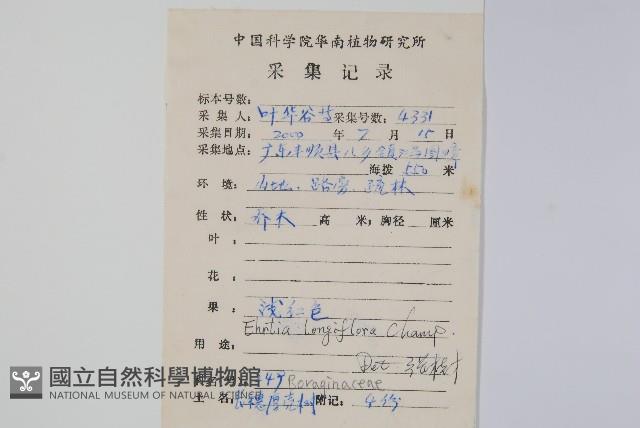 中国科学院华南植物研究所
采集记录
标本号数：
采集人：叶华谷等 采集号数：4331
采集日期：2000 年 7 月 15 日
采集地点：广东丰顺县八乡镇
海拨 550 米
环境：山地、路旁、疏林
性状：乔木 高 米；胸径 厘米
叶：
花：
果：浅红色
Ehretia longiflora Champ.
用途：
Det
249 Boraginaceae
土名：长德厚壳树 附记：4份
國立自然科學博物館
NATIONAL MUSEUM OF NATURAL SCIENCE